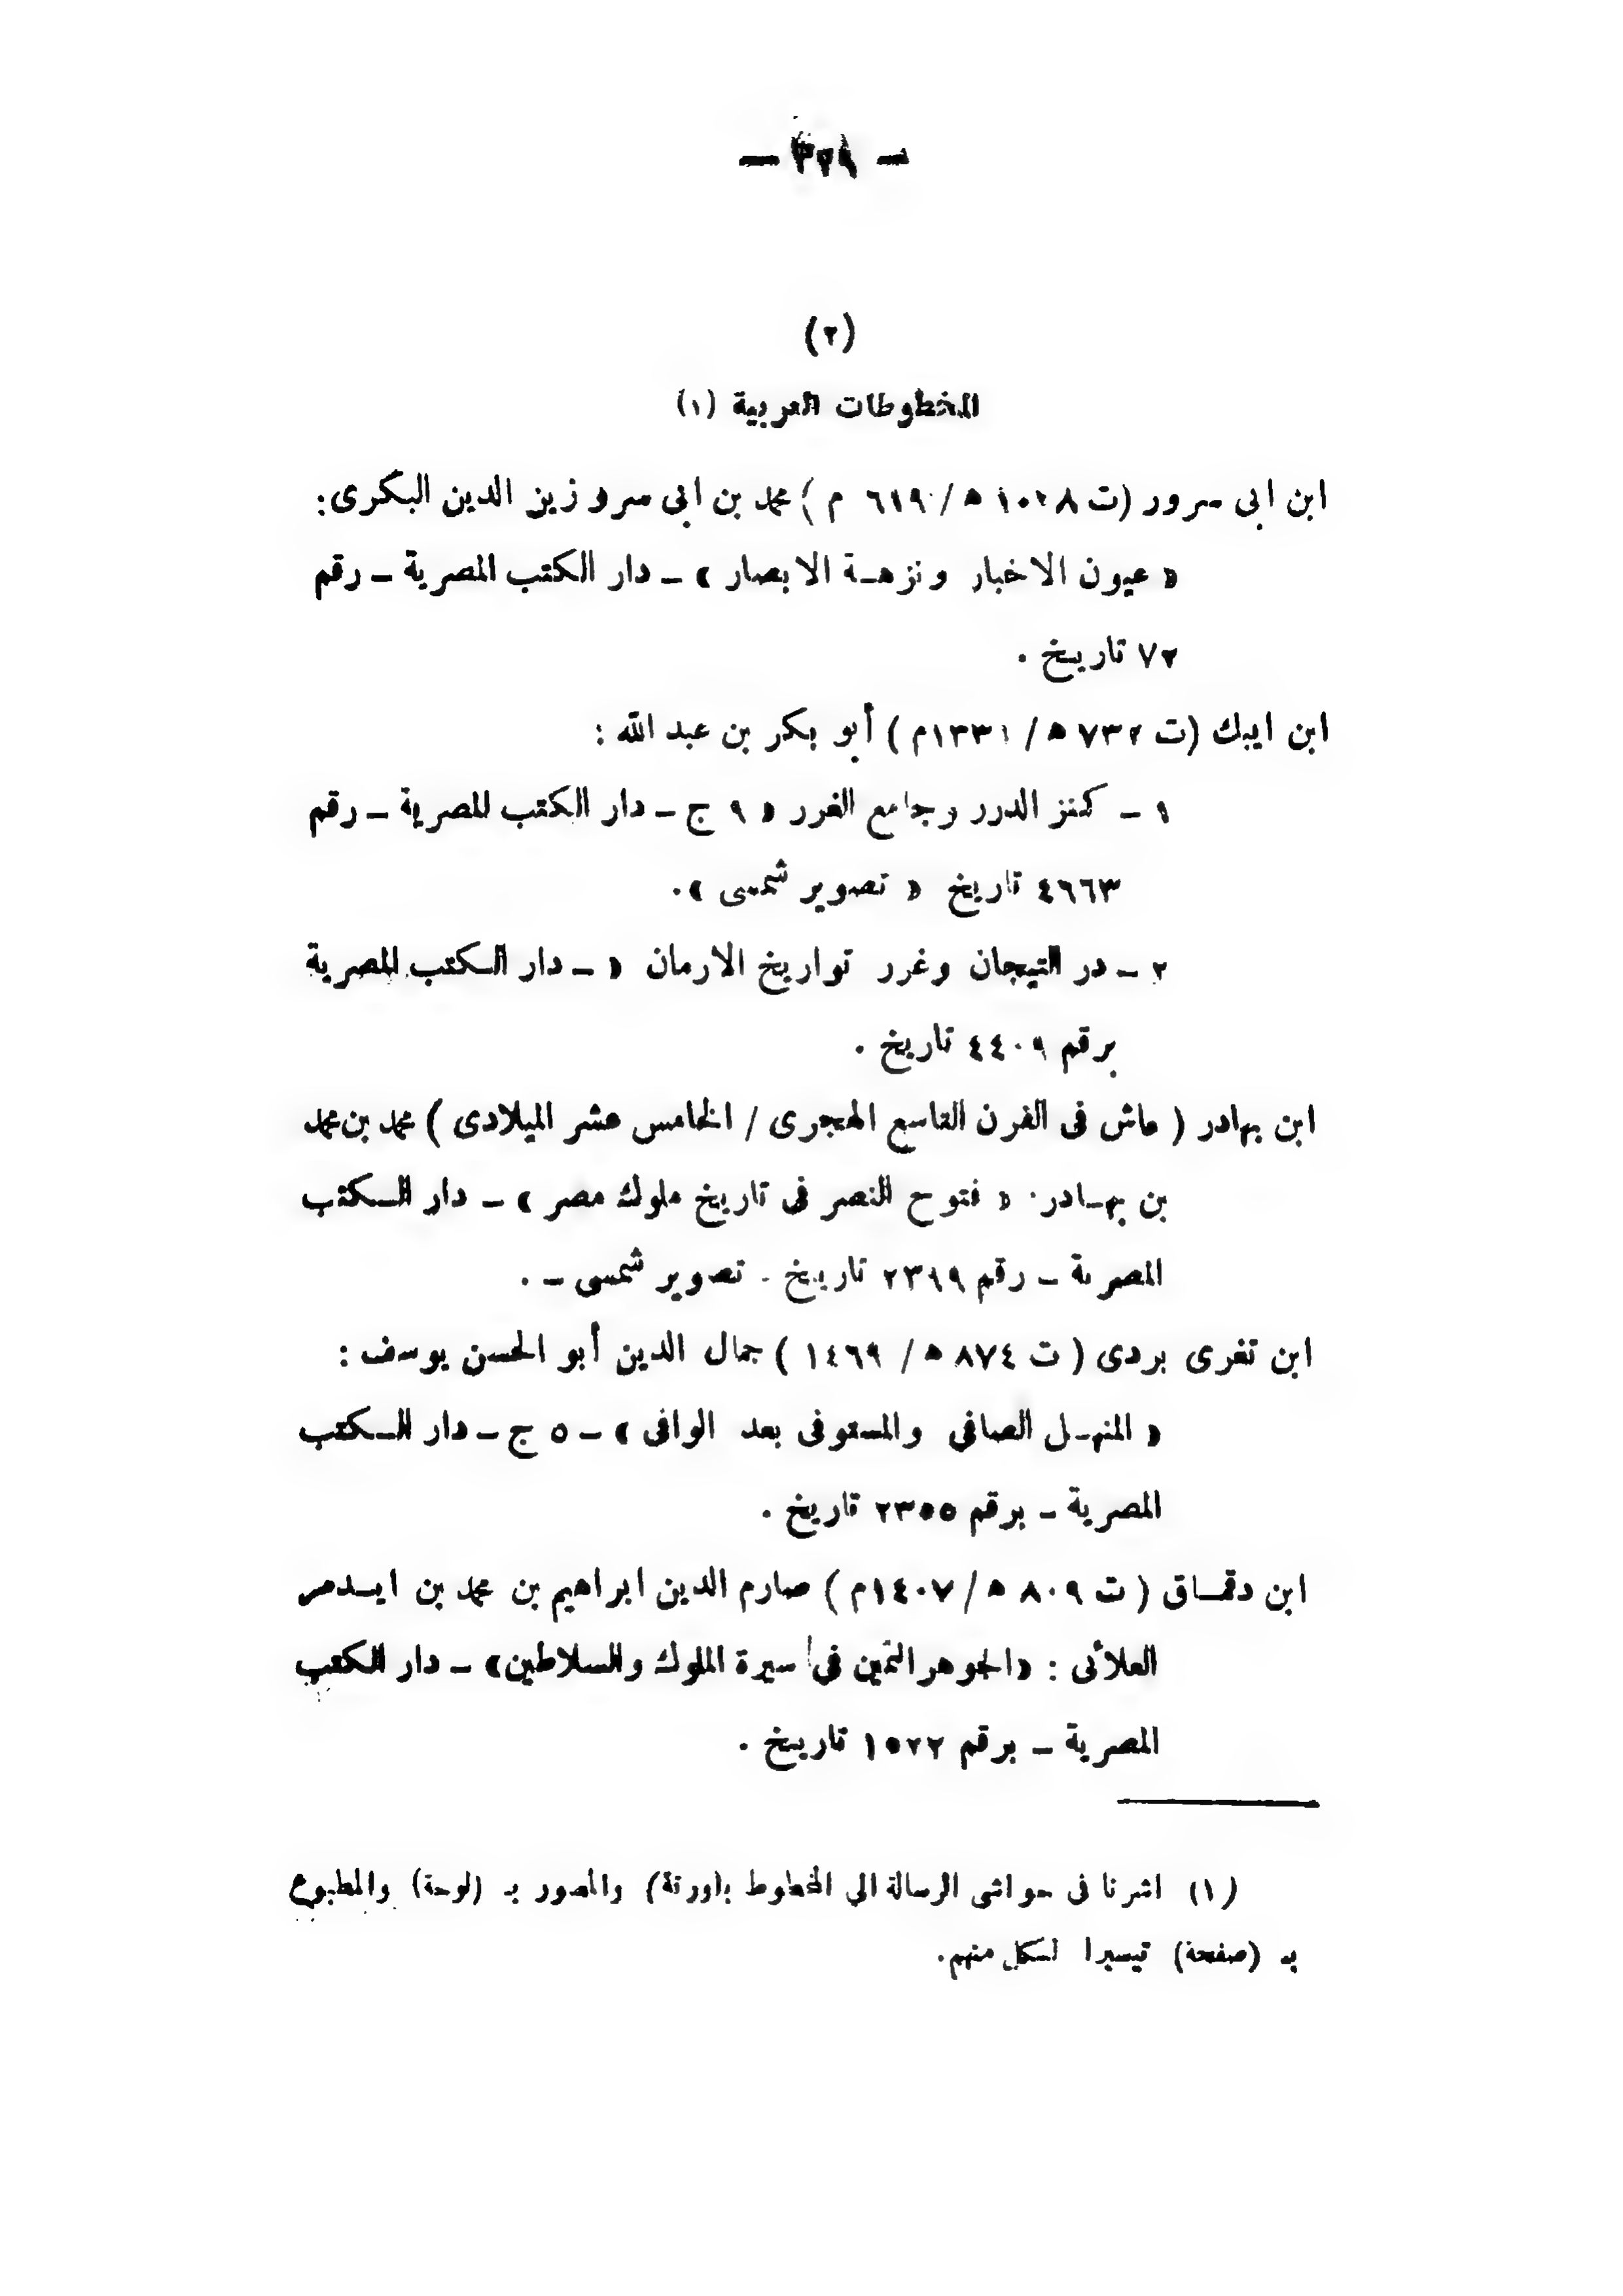 — ٣٢٩ —
(٢)
المخطوطات العربية (١)
ابن ابى سرور (ت ١٠٢٨ ه / ٦١٩ م) محمد بن ابى سرو زين الدين البكرى:
« عيون الاخبار ونزهـة الابصار » – دار الكتب المصرية – رقم
٧٢ تاريخ .
ابن ايبك (ت ٧٣٢ ه / ١٣٣١م ) أبو بكر بن عبد الله :
١ – كنز الدرر وجامع الغرر « ٩ ج – دار الكتب المصرية – رقم
٤٦٦٣ تاريخ « تصوير شمسى ».
٢ – در التيجان وغرر تواريخ الازمان « – دار الـكتب المصرية
برقم ٤٤٠٩ تاريخ .
ابن بهادر ( عاش فى القرن التاسع الهجرى / الخامس عشر الميلادى ) محمد بن محمد
بن بهـادر . « فتوح النصر فى تاريخ ملوك مصر » – دار الـكتب
المصرية – رقم ٢٣٩٩ تاريخ - تصوير شمسى – .
ابن تغرى بردى ( ت ٨٧٤ ه / ١٤٦٩ ) جمال الدين أبو الحسن يوسف :
« المنهـل الصافي والمستوفى بعد الوافى » – ٥ ج – دار الـكتب
المصرية – برقم ٢٣٥٥ تاريخ .
ابن دقمـاق ( ت ٨٠٩ ه / ١٤٠٧م ) صارم الدين ابراهيم بن محمد بن ايـدمر
العلائى : «الجوهر الثمين في سيرة الملوك والسلاطين» – دار الكتب
المصرية – برقم ١٥٢٢ تاريخ .
(١) اشرنا فى حواشى الرسالة الى المخطوط ب(ورقة) والمصور بـ (لوحة) والمطبوع
بـ (صفحة) تيسيرا لـكل منهم.